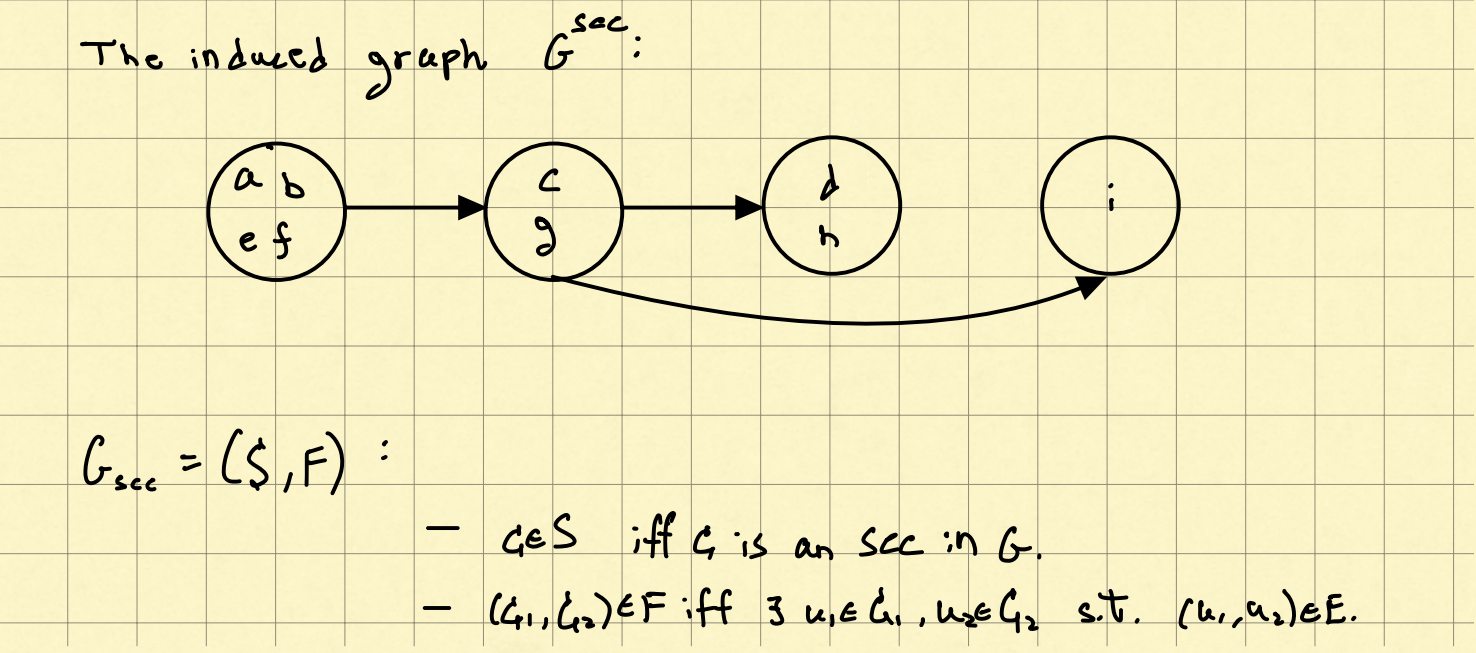 The induced graph G^scc:
a b c d i
e f g h
G_scc = (S, F) :
— C∈S iff C is an scc in G.
— (C₁, C₂)∈F iff ∃ u₁∈C₁, u₂∈C₂ s.t. (u₁, u₂)∈E.